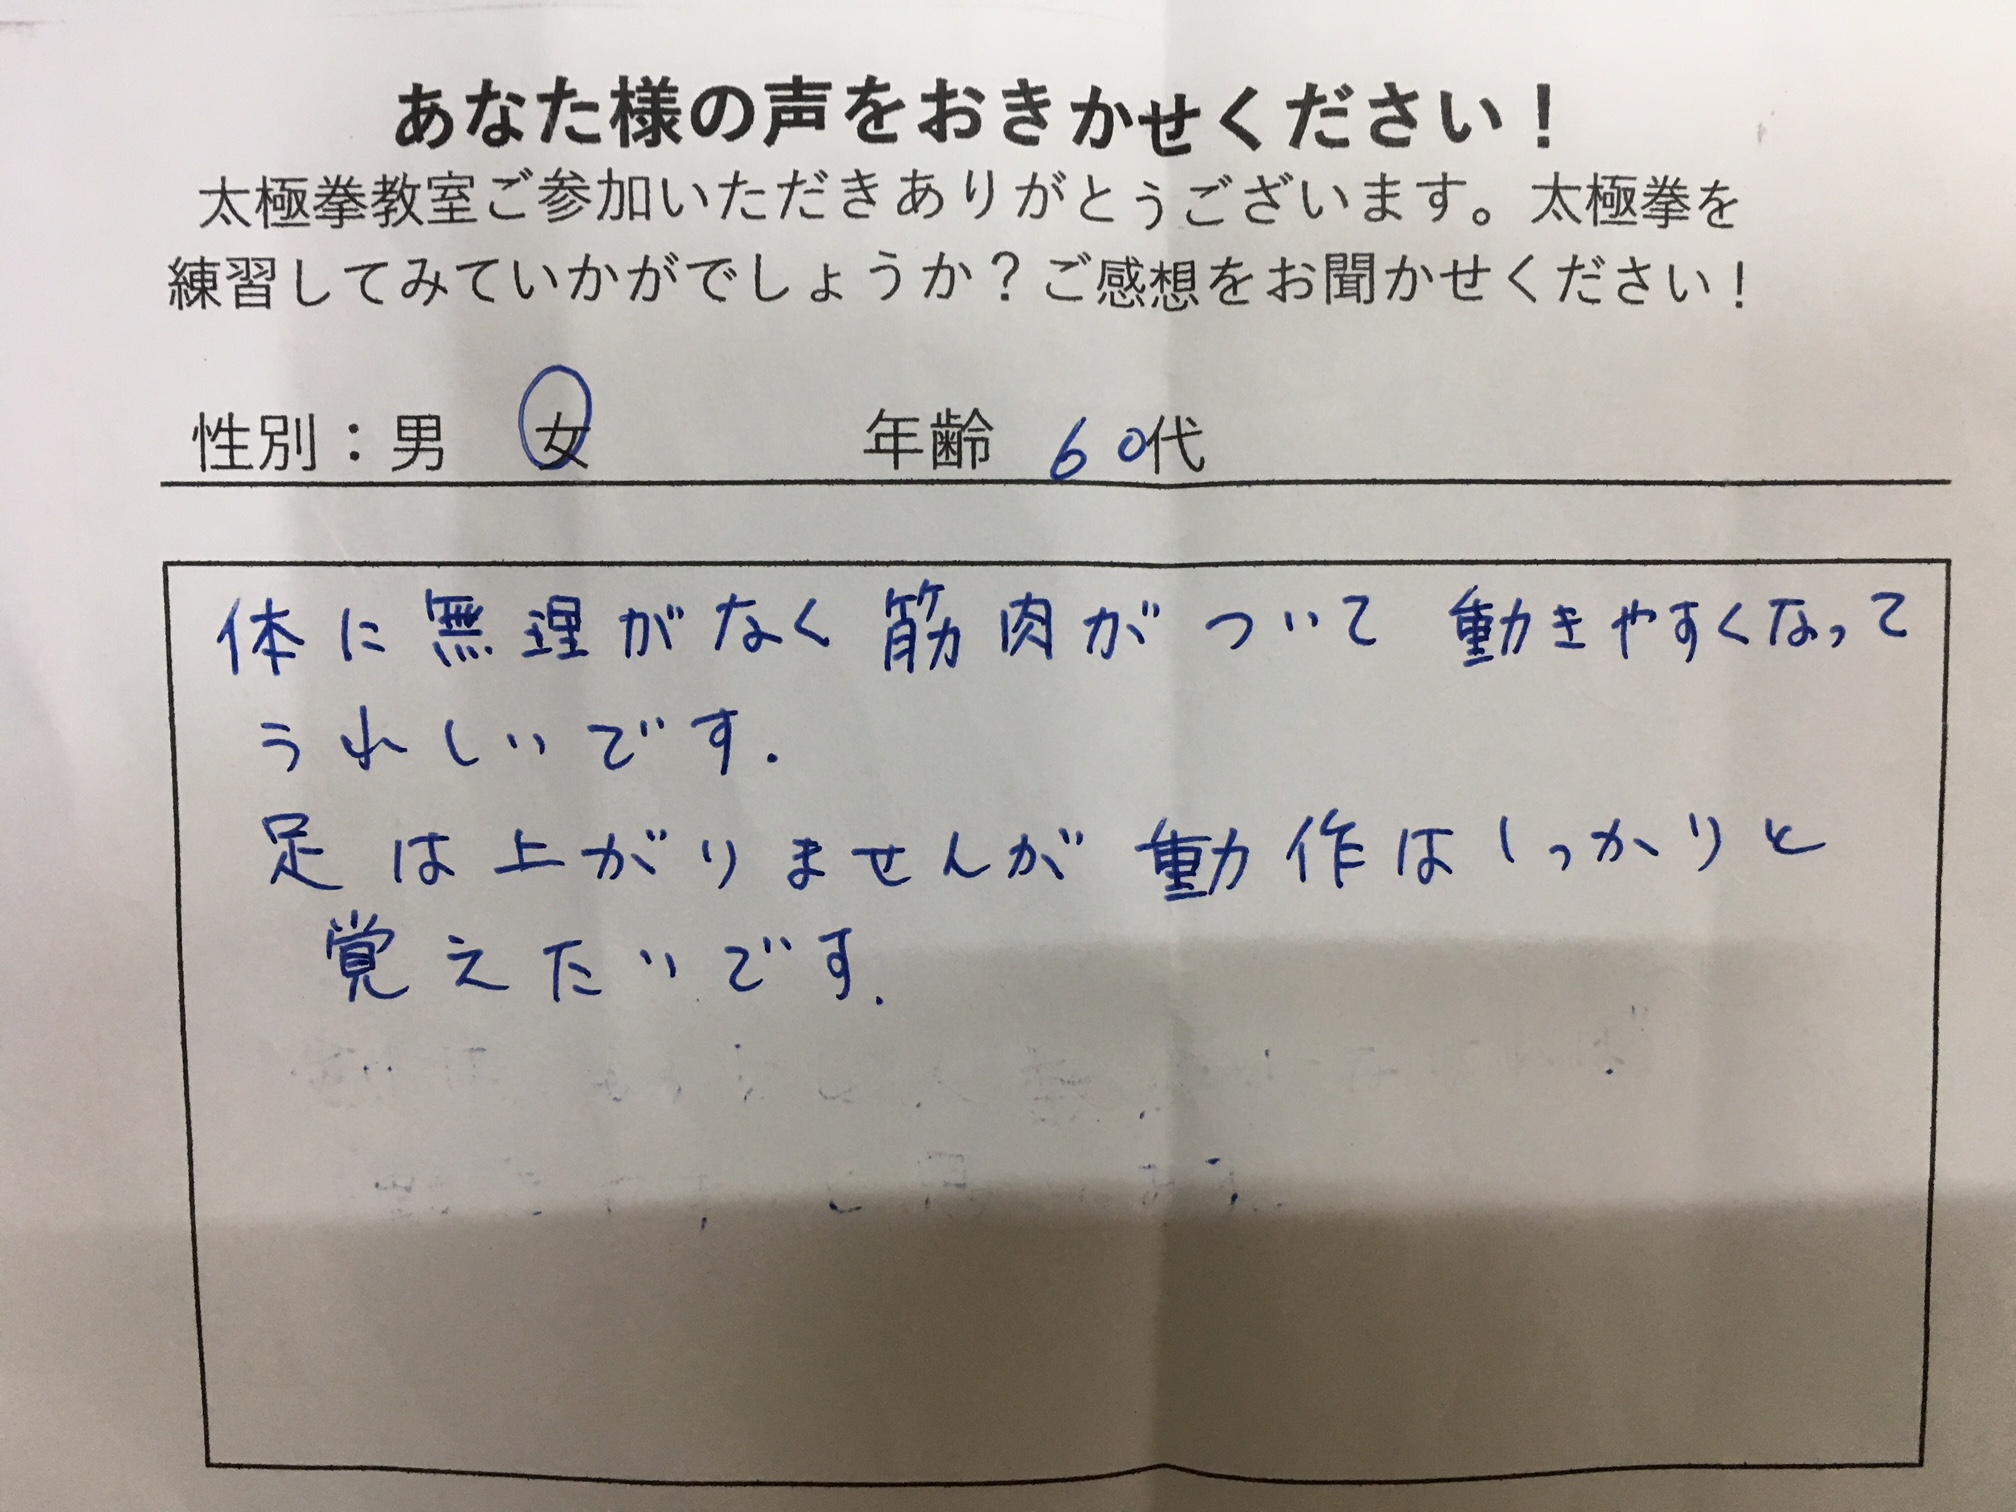 あなた様の声をおきかせください！
太極拳教室ご参加いただきありがとぅございます。太極拳を
練習してみていかがでしょうか？ご感想をお聞かせください！
性別：男　女　年齢　60代
体に無理がなく筋肉がついて動きやすくなって
うれしいです.
足は上がりませんが動作はしっかりと
覚えたいです.